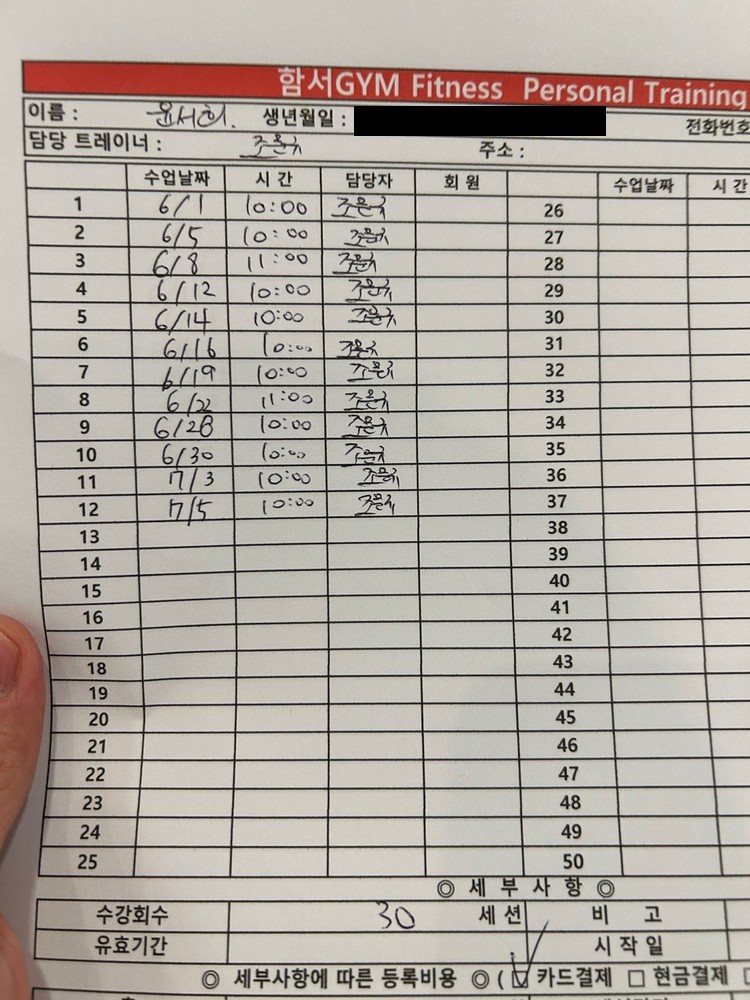 함서GYM Fitness Personal Training
이름 : 윤서희. 생년월일 : 전화번호
담당 트레이너 : 주소 :
수업날짜 시 간 담당자 회 원 수업날짜 시 간
1 6/1 10:00 26
2 6/5 10:00 27
3 6/8 11:00 28
4 6/12 10:00 29
5 6/14 10:00 30
6 6/16 10:00 31
7 6/19 10:00 32
8 6/22 11:00 33
9 6/28 10:00 34
10 6/30 10:00 35
11 7/3 10:00 36
12 7/5 10:00 37
13 38
14 39
15 40
16 41
17 42
18 43
19 44
20 45
21 46
22 47
23 48
24 49
25 50
◎ 세 부 사 항 ◎
수강회수 30 세 션 비 고
유효기간 시 작 일
◎ 세부사항에 따른 등록비용 ◎ ( ☑ 카드결제 □ 현금결제 □